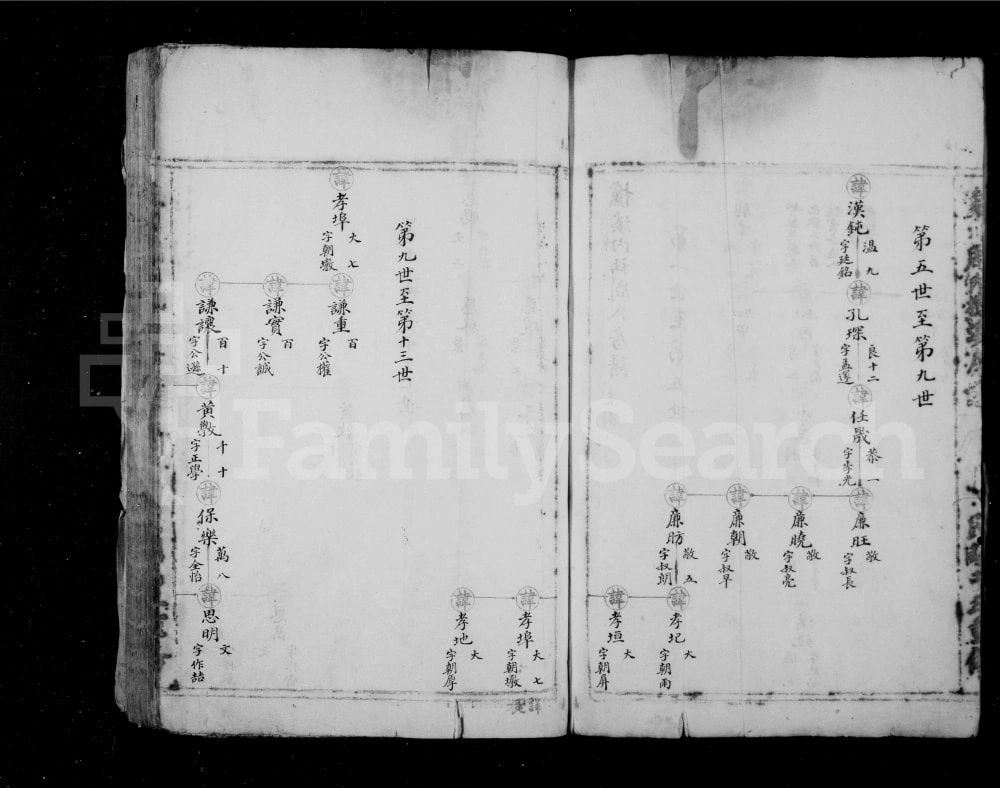 第五世至第九世
諱
漢鈍
溫九
字廷銘
諱
孔琛
良十二
字孟蓬
諱
任晟
恭一
字季光
諱
廉旺
敬
字叔長
諱
廉曉
敬
字叔亮
諱
廉朝
敬
字叔早
諱
廉昉
敬五
字叔朗
諱
孝圮
大
字朝雨
諱
孝垣
大
字朝屏
諱
孝埠
大七
字朝墩
諱
孝地
大
字朝厚
第九世至第十三世
諱
孝埠
大七
字朝墩
諱
謙重
百
字公權
諱
謙實
百
字公誠
諱
謙讓
百十
字公遜
諱
黃斆
千十
字正學
諱
保樂
萬八
字全怡
諱
思明
文
字作喆
FamilySearch